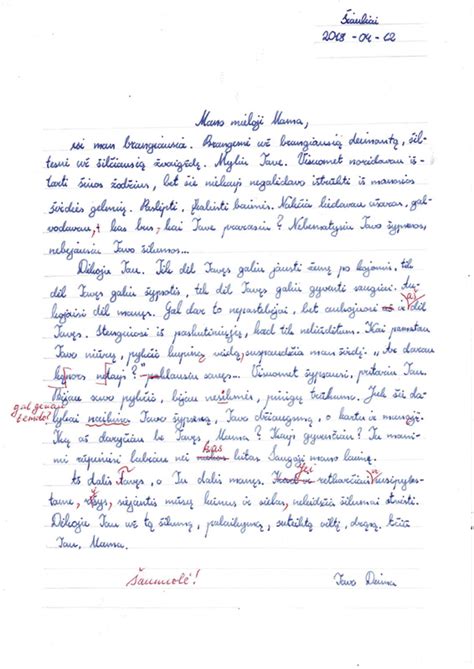 Šiauliai
2018-04-02
Mano mieloji Mama,
esi man brangiausia. Brangesnė už brangiausią deimantą, šil-
tesnė už šilčiausią žvaigždę. Myliu Tave. Visuomet norėdavau iš-
tarti šiuos žodžius, bet jie niekaip negalėdavo ištrūkti iš manosios
širdies gelmių. Paslėpti, įkalinti baimės. Naktis leidavau ašaras, gal-
vodavau, kas bus, kai Tave prarasiu? Nebematysiu Tavo šypsenos,
nebejausiu Tavo šilumos...
Dėkoju Tau. Tik dėl Tavęs galiu jausti žemę po kojomis, tik
dėl Tavęs galiu šypsotis, tik dėl Tavęs galiu gyventi saugiai. Au-
kojaisi dėl manęs. Gal dar to nepastebėjai, bet aukojuosi ir aš dėl
Tavęs. Stengiuosi iš paskutiniųjų, kad tik neliūdėtum. Kai pamatau
Tavo niūrų, pykčio kupiną veidą, suspaudžia man širdį. „Ar darau
kažką ne taip?" - paklausiu savęs... Visuomet šypsausi, pritariu Tau.
Bijau savo pykčio, bijau nesėkmės, pinigų trūkumo. Jei šie da-
gal geriau
temdo!
lykai naikina Tavo šypseną, Tavo džiaugsmą, o kartu ir manąjį.
Ką aš daryčiau be Tavęs, Mama? Kaip gyvenčiau? Tu mani-
mi rūpiniesi labiau nei kas kitas. Saugoji mano laimę.
Aš dalis Tavęs, o Tu dalis manęs. retkarčiais susipyks-
tame, rūpesčiai mūsų kūnus ir sielas, neleidžia šilumai atvėsti.
Dėkoju Tau už tą šilumą, palaikymą, suteiktą viltį, drąsą. Ačiū
Tau, Mama.
Šaunuolė!
Tavo Daina